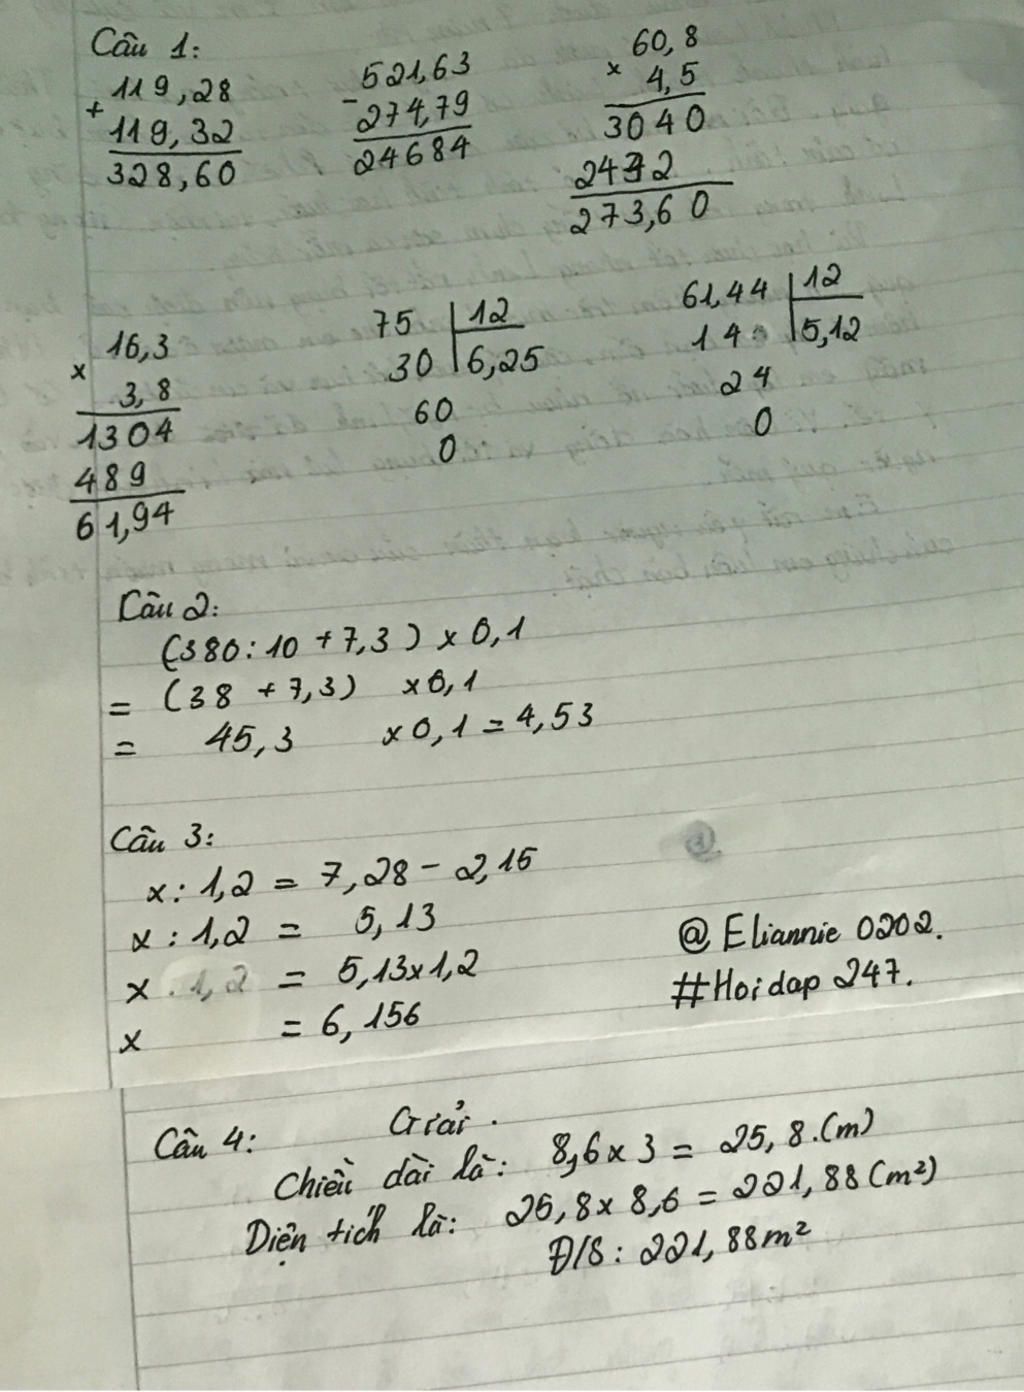 Câu 1:
+ 119,28
119,32
328,60
- 521,63
274,79
24684
60,8
× 4,5
3040
2432
273,60
16,3
× 3,8
1304
489
61,94
75 | 12
30 | 6,25
60
0
61,44 | 12
14 | 5,12
24
0
Câu 2:
(380:10 + 7,3) × 0,1
= (38 + 7,3) × 0,1
= 45,3 × 0,1 = 4,53
Câu 3:
x : 1,2 = 7,28 - 2,15
x : 1,2 = 5,13
x = 5,13 × 1,2
x = 6,156
@ Eliannie 0202.
#Hoidap 247.
Câu 4: Giải.
Chiều dài là: 8,6 × 3 = 25,8.(m)
Diện tích là: 25,8 × 8,6 = 221,88 (m²)
Đ/S: 221,88m²